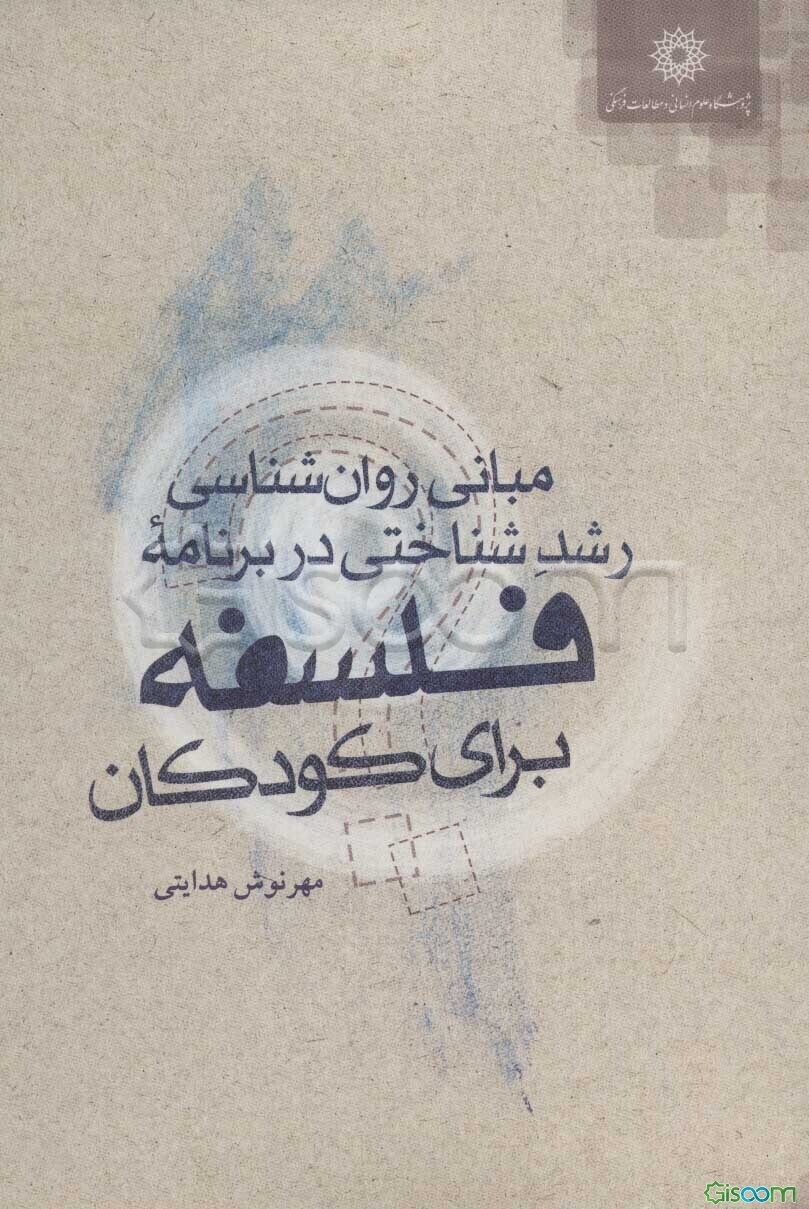 پژوهشگاه علوم انسانی و مطالعات فرهنگی
مبانی روان‌شناسی
رشدِ شناختی در برنامهٔ
فلسفه
برای کودکان
مهرنوش هدایتی
Gisoom
Gisoom